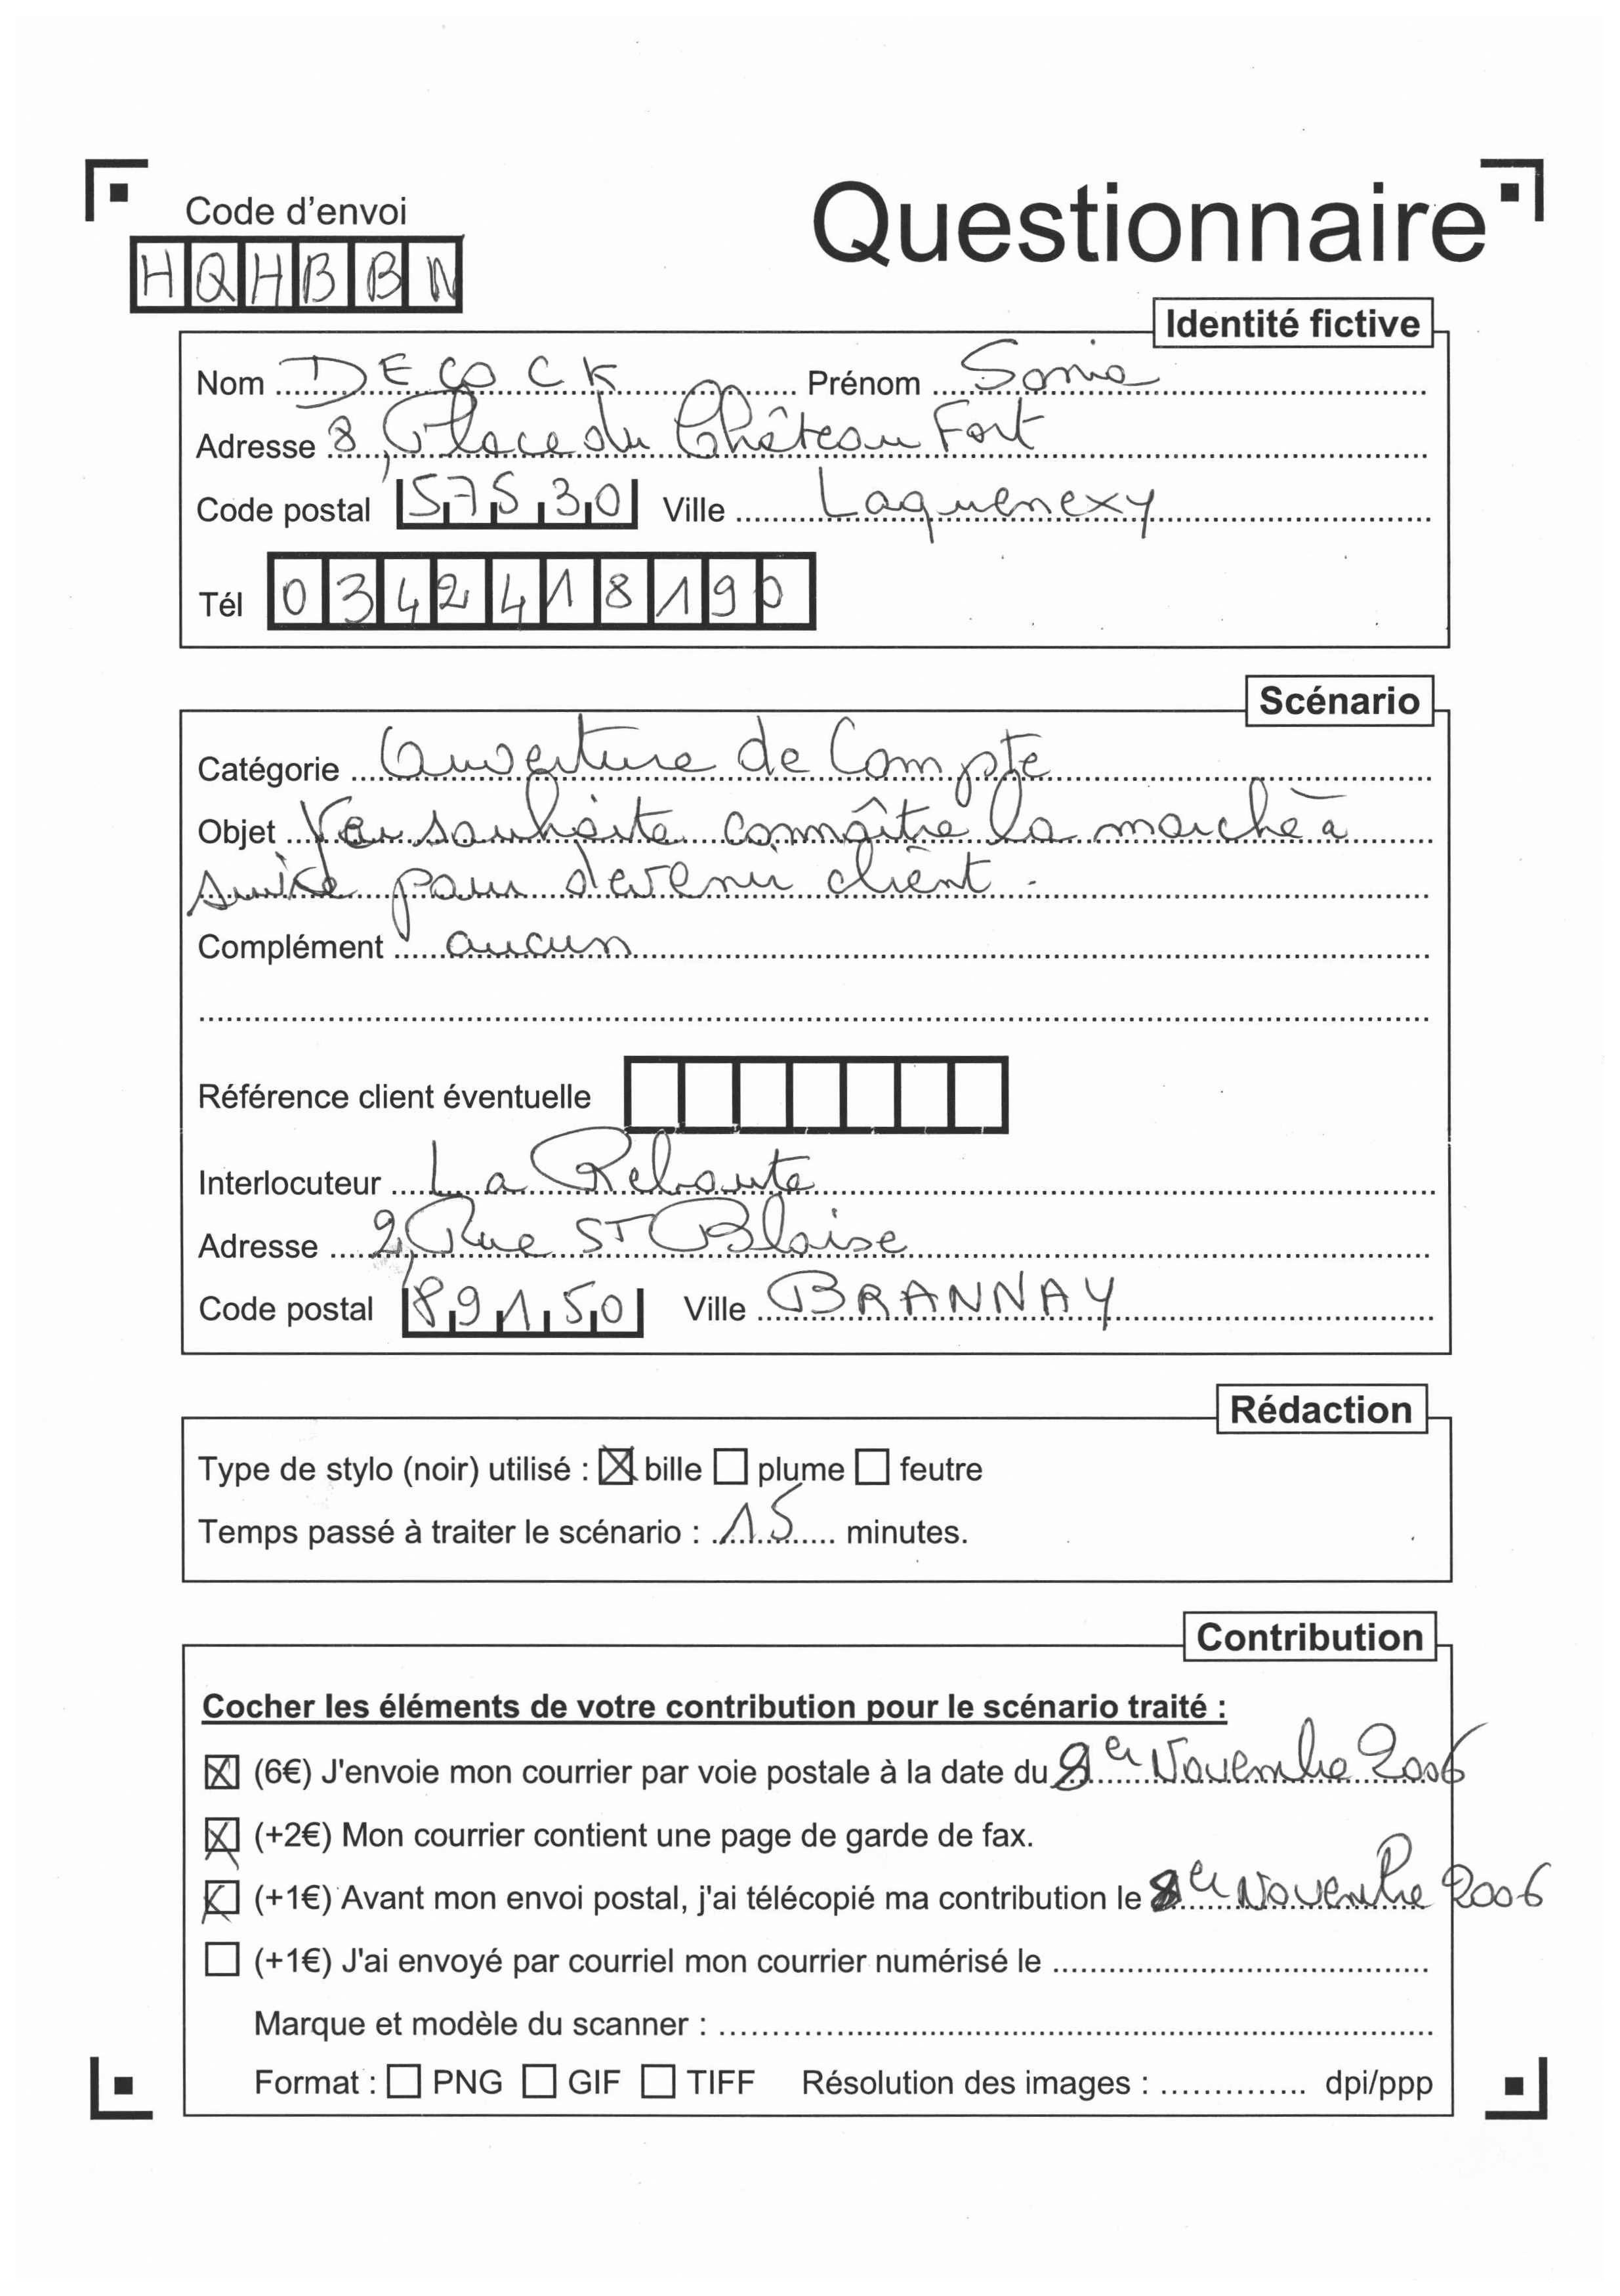 Code d'envoi
Questionnaire
HQHBBN
Identité fictive
Nom DECOCK Prénom Sonia
Adresse 8, Place du Château Fort
Code postal 57530 Ville Laquenexy
Tél 0342418190
Scénario
Catégorie Ouverture de Compte
Objet souhaite connaître la marche à
suivre pour devenir client.
Complément aucun
Référence client éventuelle
Interlocuteur La Reboute
Adresse 2, Rue ST Blaise
Code postal 89150 Ville BRANNAY
Rédaction
Type de stylo (noir) utilisé : bille plume feutre
Temps passé à traiter le scénario : 15 minutes.
Contribution
Cocher les éléments de votre contribution pour le scénario traité :
(6€) J'envoie mon courrier par voie postale à la date du Novembre 2006
(+2€) Mon courrier contient une page de garde de fax.
(+1€) Avant mon envoi postal, j'ai télécopié ma contribution le Novembre 2006
(+1€) J'ai envoyé par courriel mon courrier numérisé le
Marque et modèle du scanner :
Format : PNG GIF TIFF Résolution des images : dpi/ppp